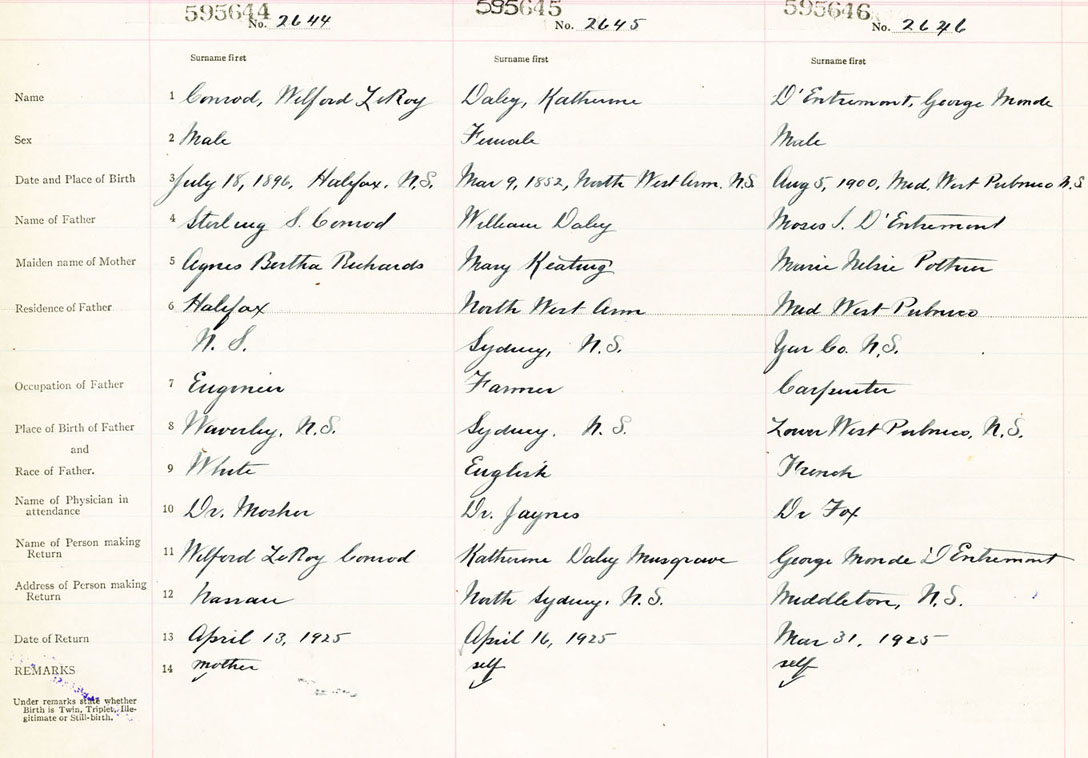 595644 595645 595646
No. 2644 No. 2645 No. 2646
Surname first Surname first Surname first
Name 1 Conrod, Wilford LeRoy Daley, Katherine D'Entremont, George Monde
Sex 2 Male Female Male
Date and Place of Birth 3 July 18, 1896, Halifax, N.S. Mar 9, 1852, North West Arm. N.S Aug 5, 1900, Mid. West Pubnico N.S
Name of Father 4 Sterling S. Conrod William Daley Moses I. D'Entremont
Maiden name of Mother 5 Agnes Bertha Richards Mary Keating Marie Pothier
Residence of Father 6 Halifax North West Arm Mid West Pubnico
N. S. Sydney, N.S. Yar Co. N.S.
Occupation of Father 7 Engineer Farmer Carpenter
Place of Birth of Father 8 Waverley, N.S. Sydney. N.S. Lower West Pubnico, N.S.
and
Race of Father. 9 White English French
Name of Physician in
attendance 10 Dr. Mosher Dr. Jaynes Dr Fox
Name of Person making
Return 11 Wilford LeRoy Conrod Katherine Daley Musgrave George Monde D'Entremont
Address of Person making
Return 12 Nassau North Sydney. N.S. Middleton, N.S.
Date of Return 13 April 13, 1925 April 16, 1925 Mar 31, 1925
REMARKS 14 mother self self
Under remarks state whether
Birth is Twin, Triplet, Ille-
gitimate or Still-birth.